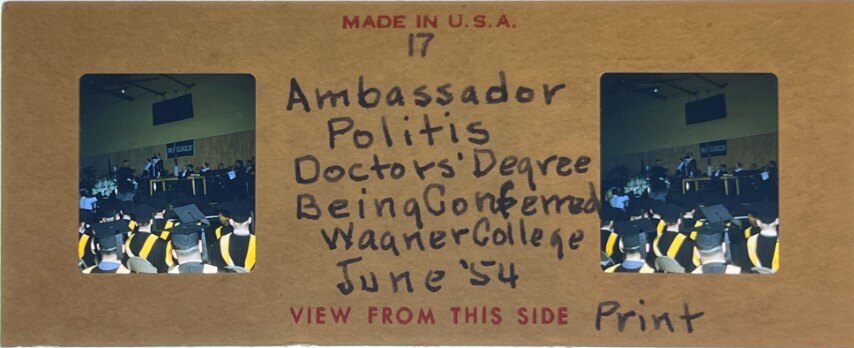 MADE IN U.S.A.
17
Ambassador
Politis
Doctors' Degree
Being Conferred
Wagner College
June '54
VIEW FROM THIS SIDE
Print
WAGNER
WAGNER